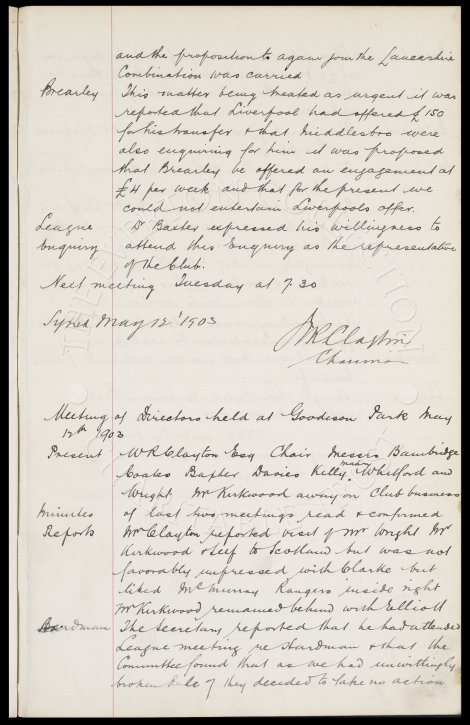 and the proposition to again join the Lancashire
Combination was carried
Brearley This matter being treated as urgent it was
reported that Liverpool had offered £150
for his transfer & that Middlesbro were
also enquiring for him it was proposed
that Brearley be offered an engagement at
£4 per week and that for the present we
could not entertain Liverpools offer.
League Dr Baxter expressed his willingness to
Enquiry attend this Enquiry as the representative
of the Club.
Next meeting Tuesday at 7.30
Signed May 12th 1903
W R Clayton
Chairman
Meeting of Directors held at Goodison Park May
12th 1903
Present W R Clayton Esq Chair Messrs Bainbridge
Coates Baxter Davies Kelly Whitford and
Wright Mr Kirkwood away on Club business
Minutes of last two meetings read & confirmed
Reports Mr Clayton reported visit of Mr Wright Mr
Kirkwood & self to Scotland but was not
favorably impressed with Clarke but
liked McMurray Rangers inside right
Mr Kirkwood remained behind with Elliott
Hardman The Secretary reported that he had attended
League meeting re Hardman & that the
Committee found that as we had unwittingly
broken Rule they decided to take no action